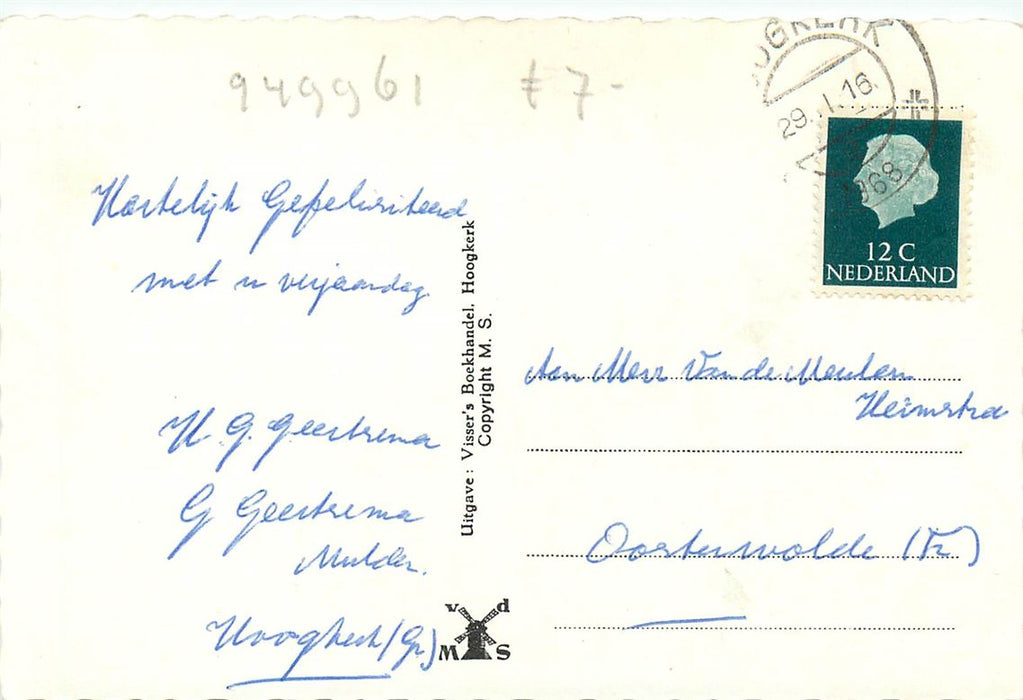 949961 £7-
HOOGKERK
29.1.16
1968
12 C
NEDERLAND
Hartelijk Gefeliciteerd
met u verjaardag
H. G. Geertsema
G Geertsema
Mulder.
Hoogkerk (Gr)
Uitgave: Visser's Boekhandel, Hoogkerk
Copyright M. S.
v d
M S
Aan Mevr Van der Meulen
Heimstra
Oosterwolde (Fr)